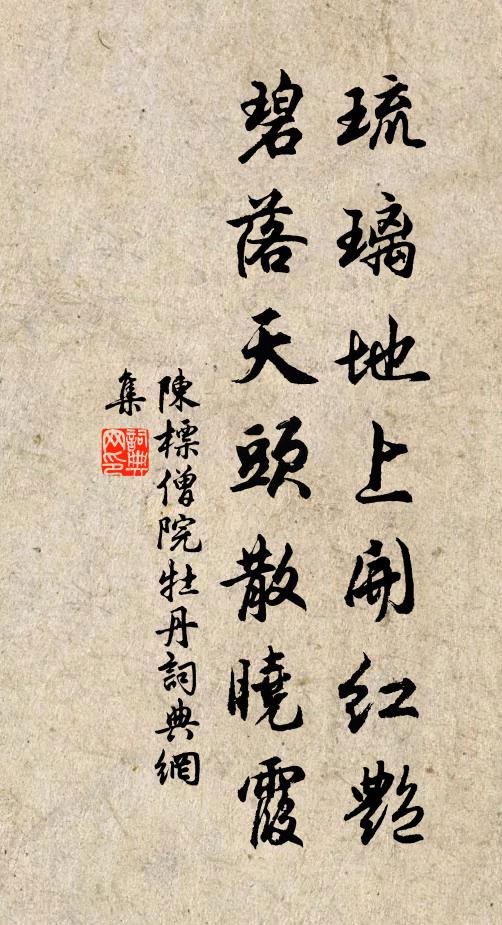 琉璃地上開紅艷
碧落天頭散曉霞
陳標僧院牡丹詞典網
集
詞典
网印